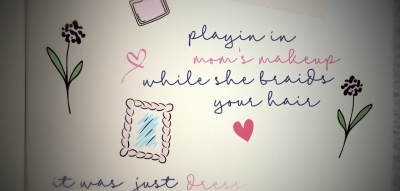 playin in
mom's makeup
while she braids
your hair
it was just dress